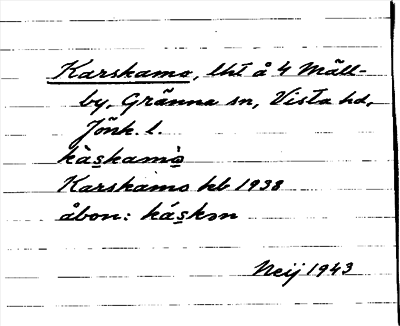 Karskamo, lht å 4 Mäll-
by, Gränna sn, Vista hd,
Jönk. l.
kàskamò
Karskamo hb 1938
åbon: káskən
Neij 1943